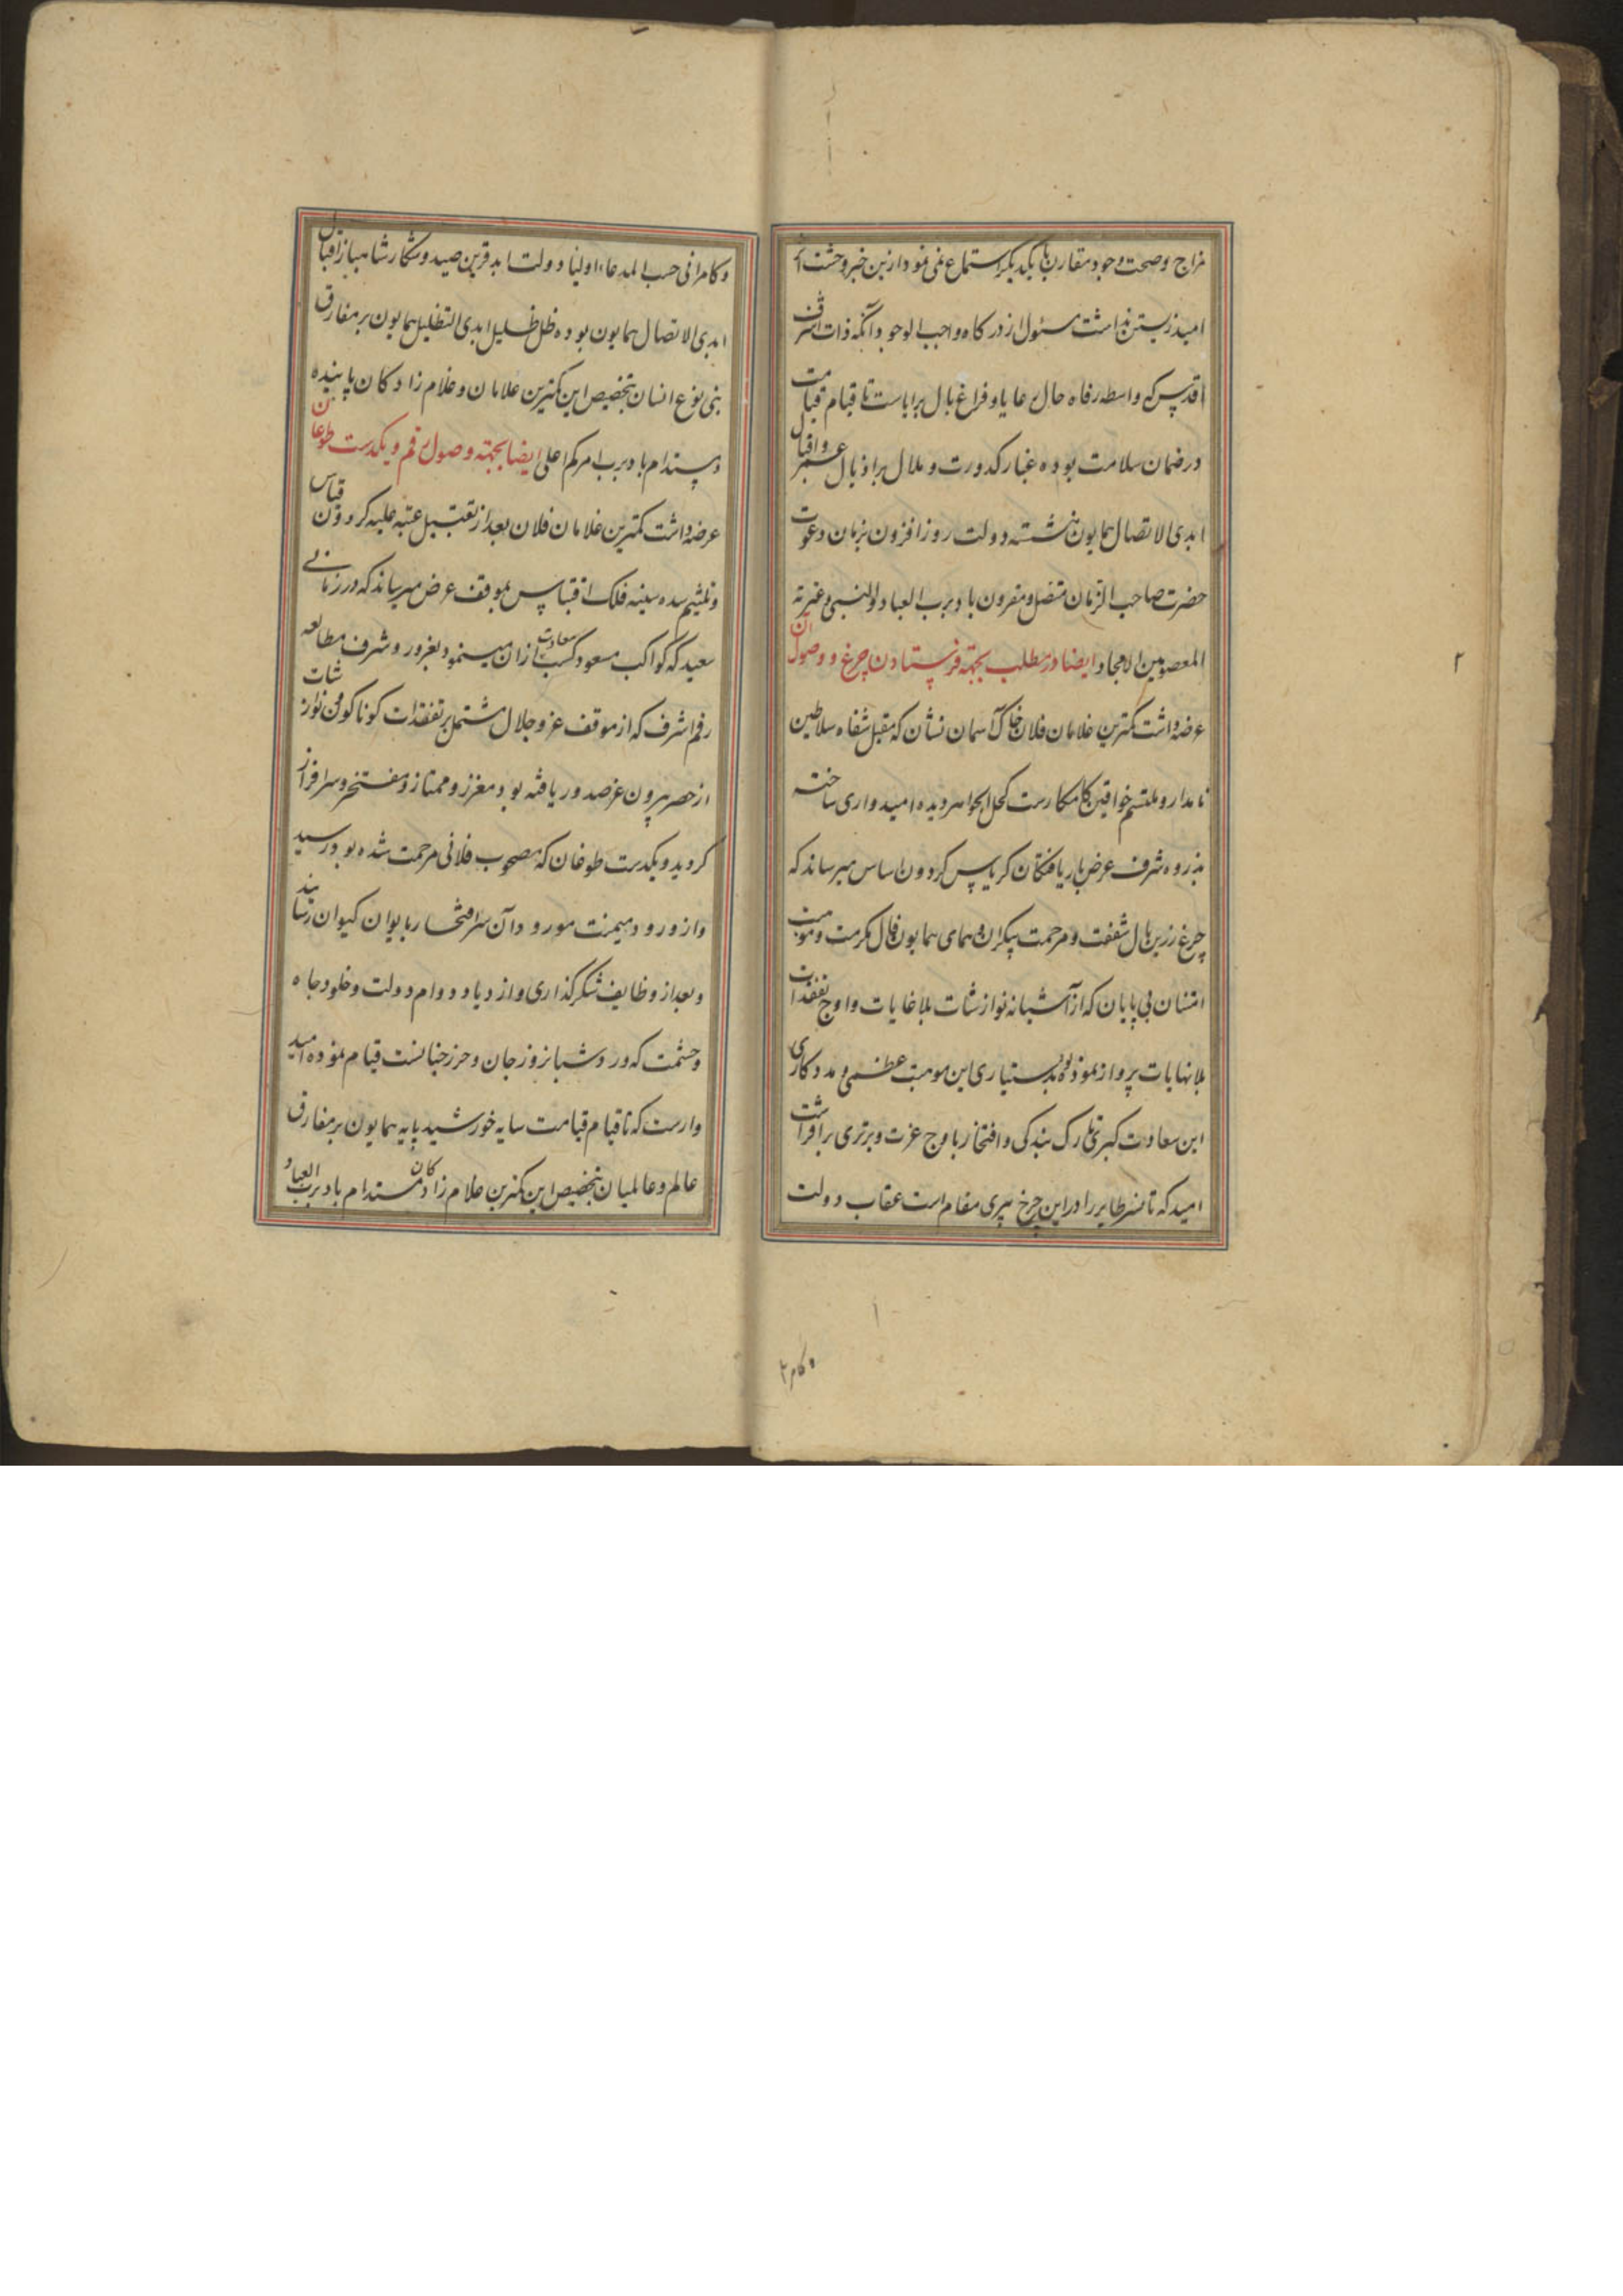 مزاج و صحت وجود مقارن با یکدیگر استماع نمی نمود ازین خبر وحشت اثر
امید زیستن نداشت مسئول از درکاه واجب الوجود آنکه ذات اشرف
اقدس که واسطه رفاه حال رعایا و فراغ بال برایاست تا قیام قیامت
در ضمان سلامت بوده غبار کدورت و ملال بر اذیال عمر و اقبال
ابدی الاتصال همایون ننشسته دولت روز افزون بزمان دعوت
حضرت صاحب الزمان متصل و مقرون باد برب العباد و النبی و عترته
المعصومین الامجاد ایضا در مطلب بجهته فرستادن چرغ و وصول آن
عرضه داشت کمترین غلامان فلان خاک آسمان نشان که مقبل شفاه سلاطین
نامدار و ملتثم خواقین کامکارست کحل الجواهر دیده امیدواری ساخته
بذروه شرف عرض بار یافتکان کریاس کردون اساس میرساند که
چرغ زرین بال شفقت و مرحمت بیکران و همای همایون فال مکرمت و موهبت
امتنان بی پایان که از آشیانه نوازشات بلا غایات و اوج تفقدات
بلا نهایات پرواز نموذه بود بدستیاری این موهبت عظمی و مددکاری
این سعادت کبری تارک بندکی و افتخار باوج عزت و برتری برافراشت
امید که تا نسر طایر را در این چرخ پیری مقام است عقاب دولت
و کامر
۲
و کامرانی حسب المدعاء اولیا دولت ابد قرین صید و شکار شاهباز اقبال
ابدی الاتصال همایون بوده ظل ظلیل ابدی التظلیل همایون بر مفارق
بنی نوع انسان بتخصیص این کمترین غلامان و غلام زادکان پاینده
و مستدام باد برب امرکم اعلی ایضا بجهته وصول رقم و یکدست طوغان
عرضه داشت کمترین غلامان فلان بعد از تقبیل عتبه علیه کردون قیاس
و تلثیم سده سنیه فلک اقتباس بموقف عرض میرساند که در زمانی
سعید که کواکب مسعود کسب سعادت ازان مینمود بغرور و شرف مطالعه
رقم اشرف که از موقف عز و جلال مشتمل بر تفقدات کوناکون و نوازشات
از حصر بیرون عز صدور یافته بود معزز و ممتاز و مفتخر و سرافراز
کردید و یکدست طوغان که مصحوب فلانی مرحمت شده بود رسید
و از ورود میمنت مورود آن سر افتخار بایوان کیوان رسانید
و بعد از وظایف شکرکذاری و ازدیاد دوام دولت و خلود جاه
و حشمت که ورد شبانروز جان و حرز جنانست قیام نموده امید
وارست که تا قیام قیامت سایه خورشید پایه همایون بر مفارق
عالم و عالمیان بتخصیص این کمترین غلام زادکان مستدام باد برب العباد